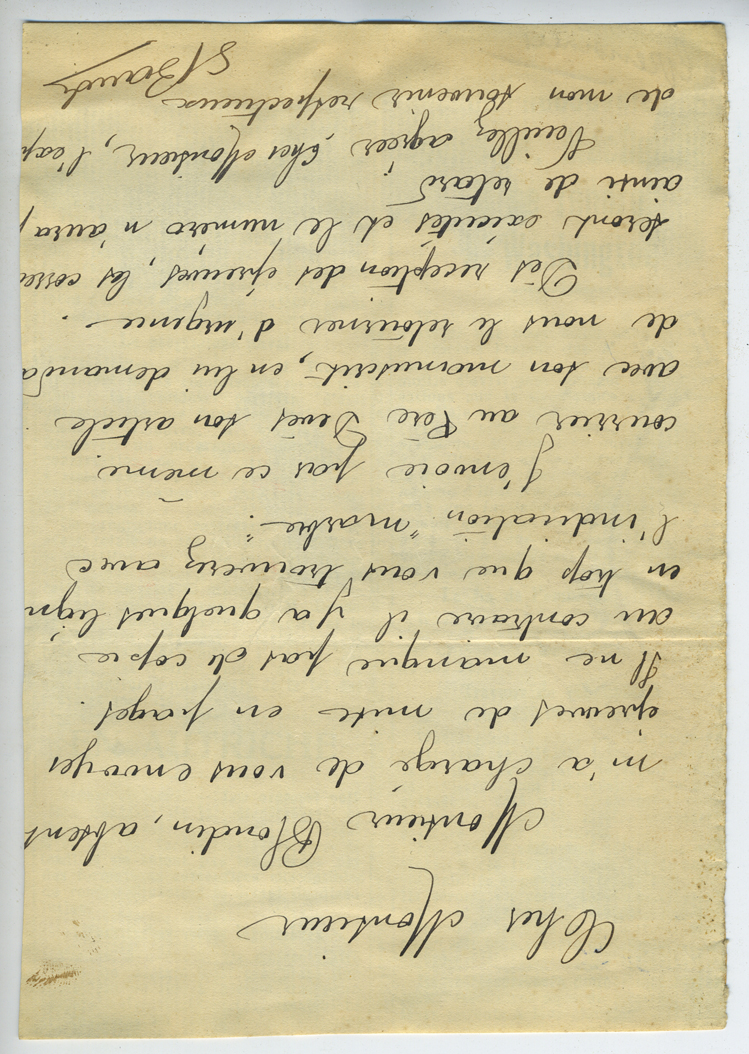 Cher Monsieur
Monsieur Blondin, absent
m'a chargé de vous envoyer
épreuves de mise en pages.
Il ne manque pas de copie
au contraire il y a quelques lign
en trop que vous trouverez avec
l'indication "marbre".
J'envoie par ce même
courrier au Père Devès son article
avec son manuscrit, en lui demanda
de nous le retourner d'urgence.
Dès reception des épreuves, les corre
seront exécutées et le numéro n'aura p
ainsi de retard
Veuillez agréer, Cher Monsieur, l'exp
de mon souvenir respectueux